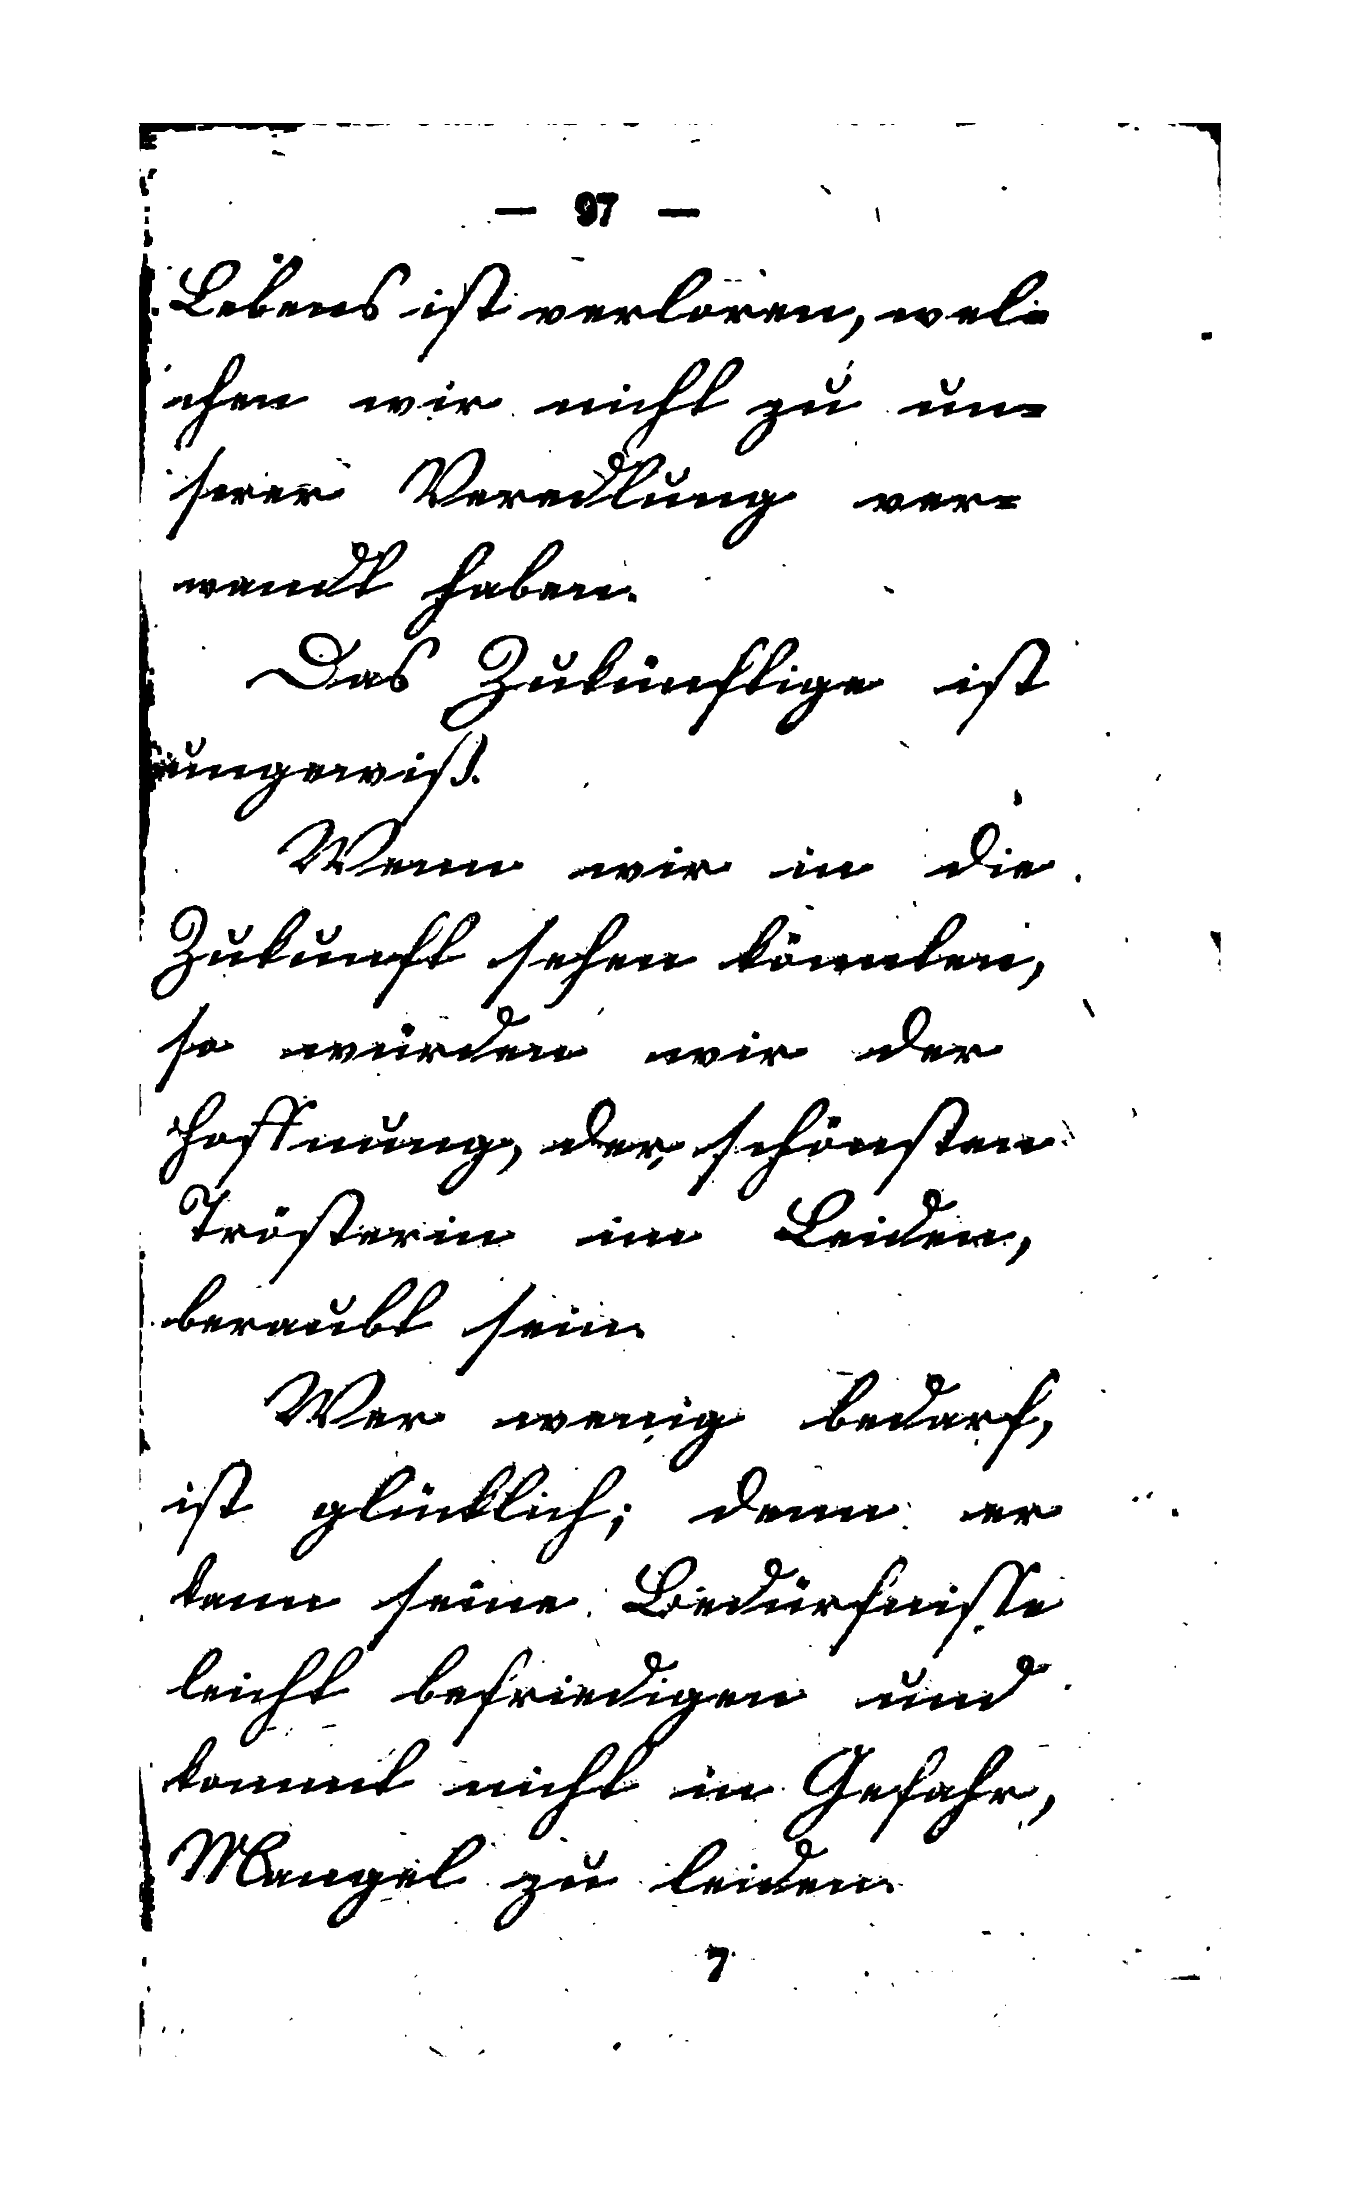 — 97 —
Lebens ist verloren, wel=
chen wir nicht zu un=
serer Veredlung ver=
wandt haben.
Das Zukünftige ist
ungewiß.
Wenn wir in die
Zukunft sehen könnten,
so würden wir der
Hoffnung, der schönsten
Trösterin im Leiden,
beraubt sein.
Wer wenig bedarf,
ist glücklich; denn er
kann seine Bedürfnisse
leicht befriedigen und
kommt nicht in Gefahr,
Mangel zu leiden.
7